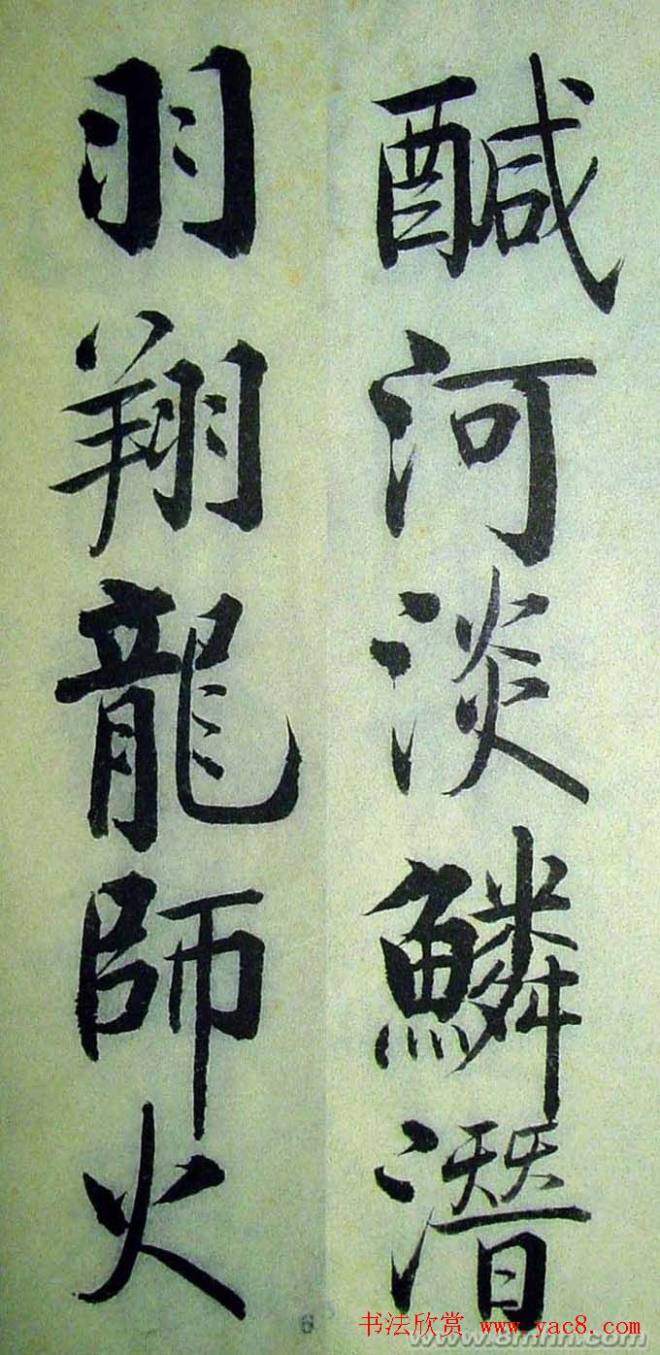 醎河淡鱗潛
羽翔龍師火
6
书法欣赏 www.yac8.com